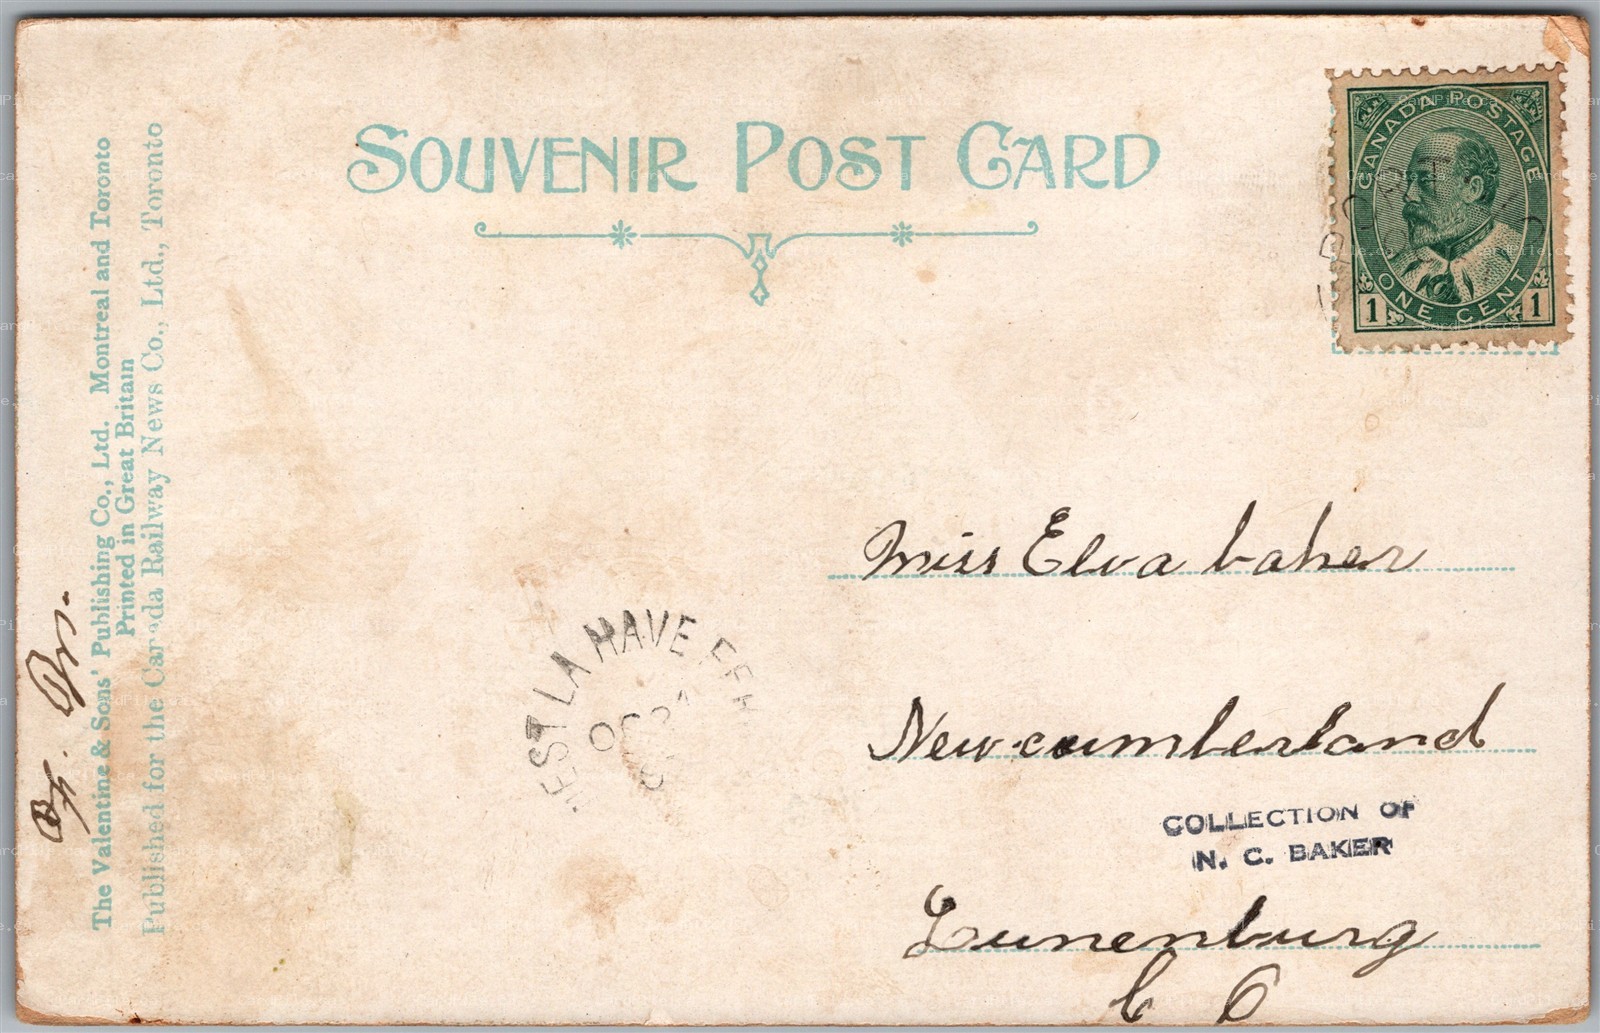 SOUVENIR POST CARD
CANADA POSTAGE
ONE CENT
1 1
The Valentine & Sons' Publishing Co., Ltd. Montreal and Toronto
Printed in Great Britain
Published for the Canada Railway News Co., Ltd., Toronto
WEST LA HAVE FER
OC 27
Miss Elva baker
New-cumberland
COLLECTION OF
N. C. BAKER
Lunenburg
C O